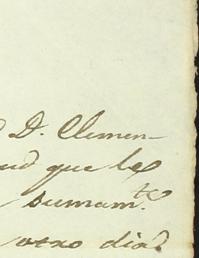 D. Clemen-
ud que le
sumam.te
otro dia